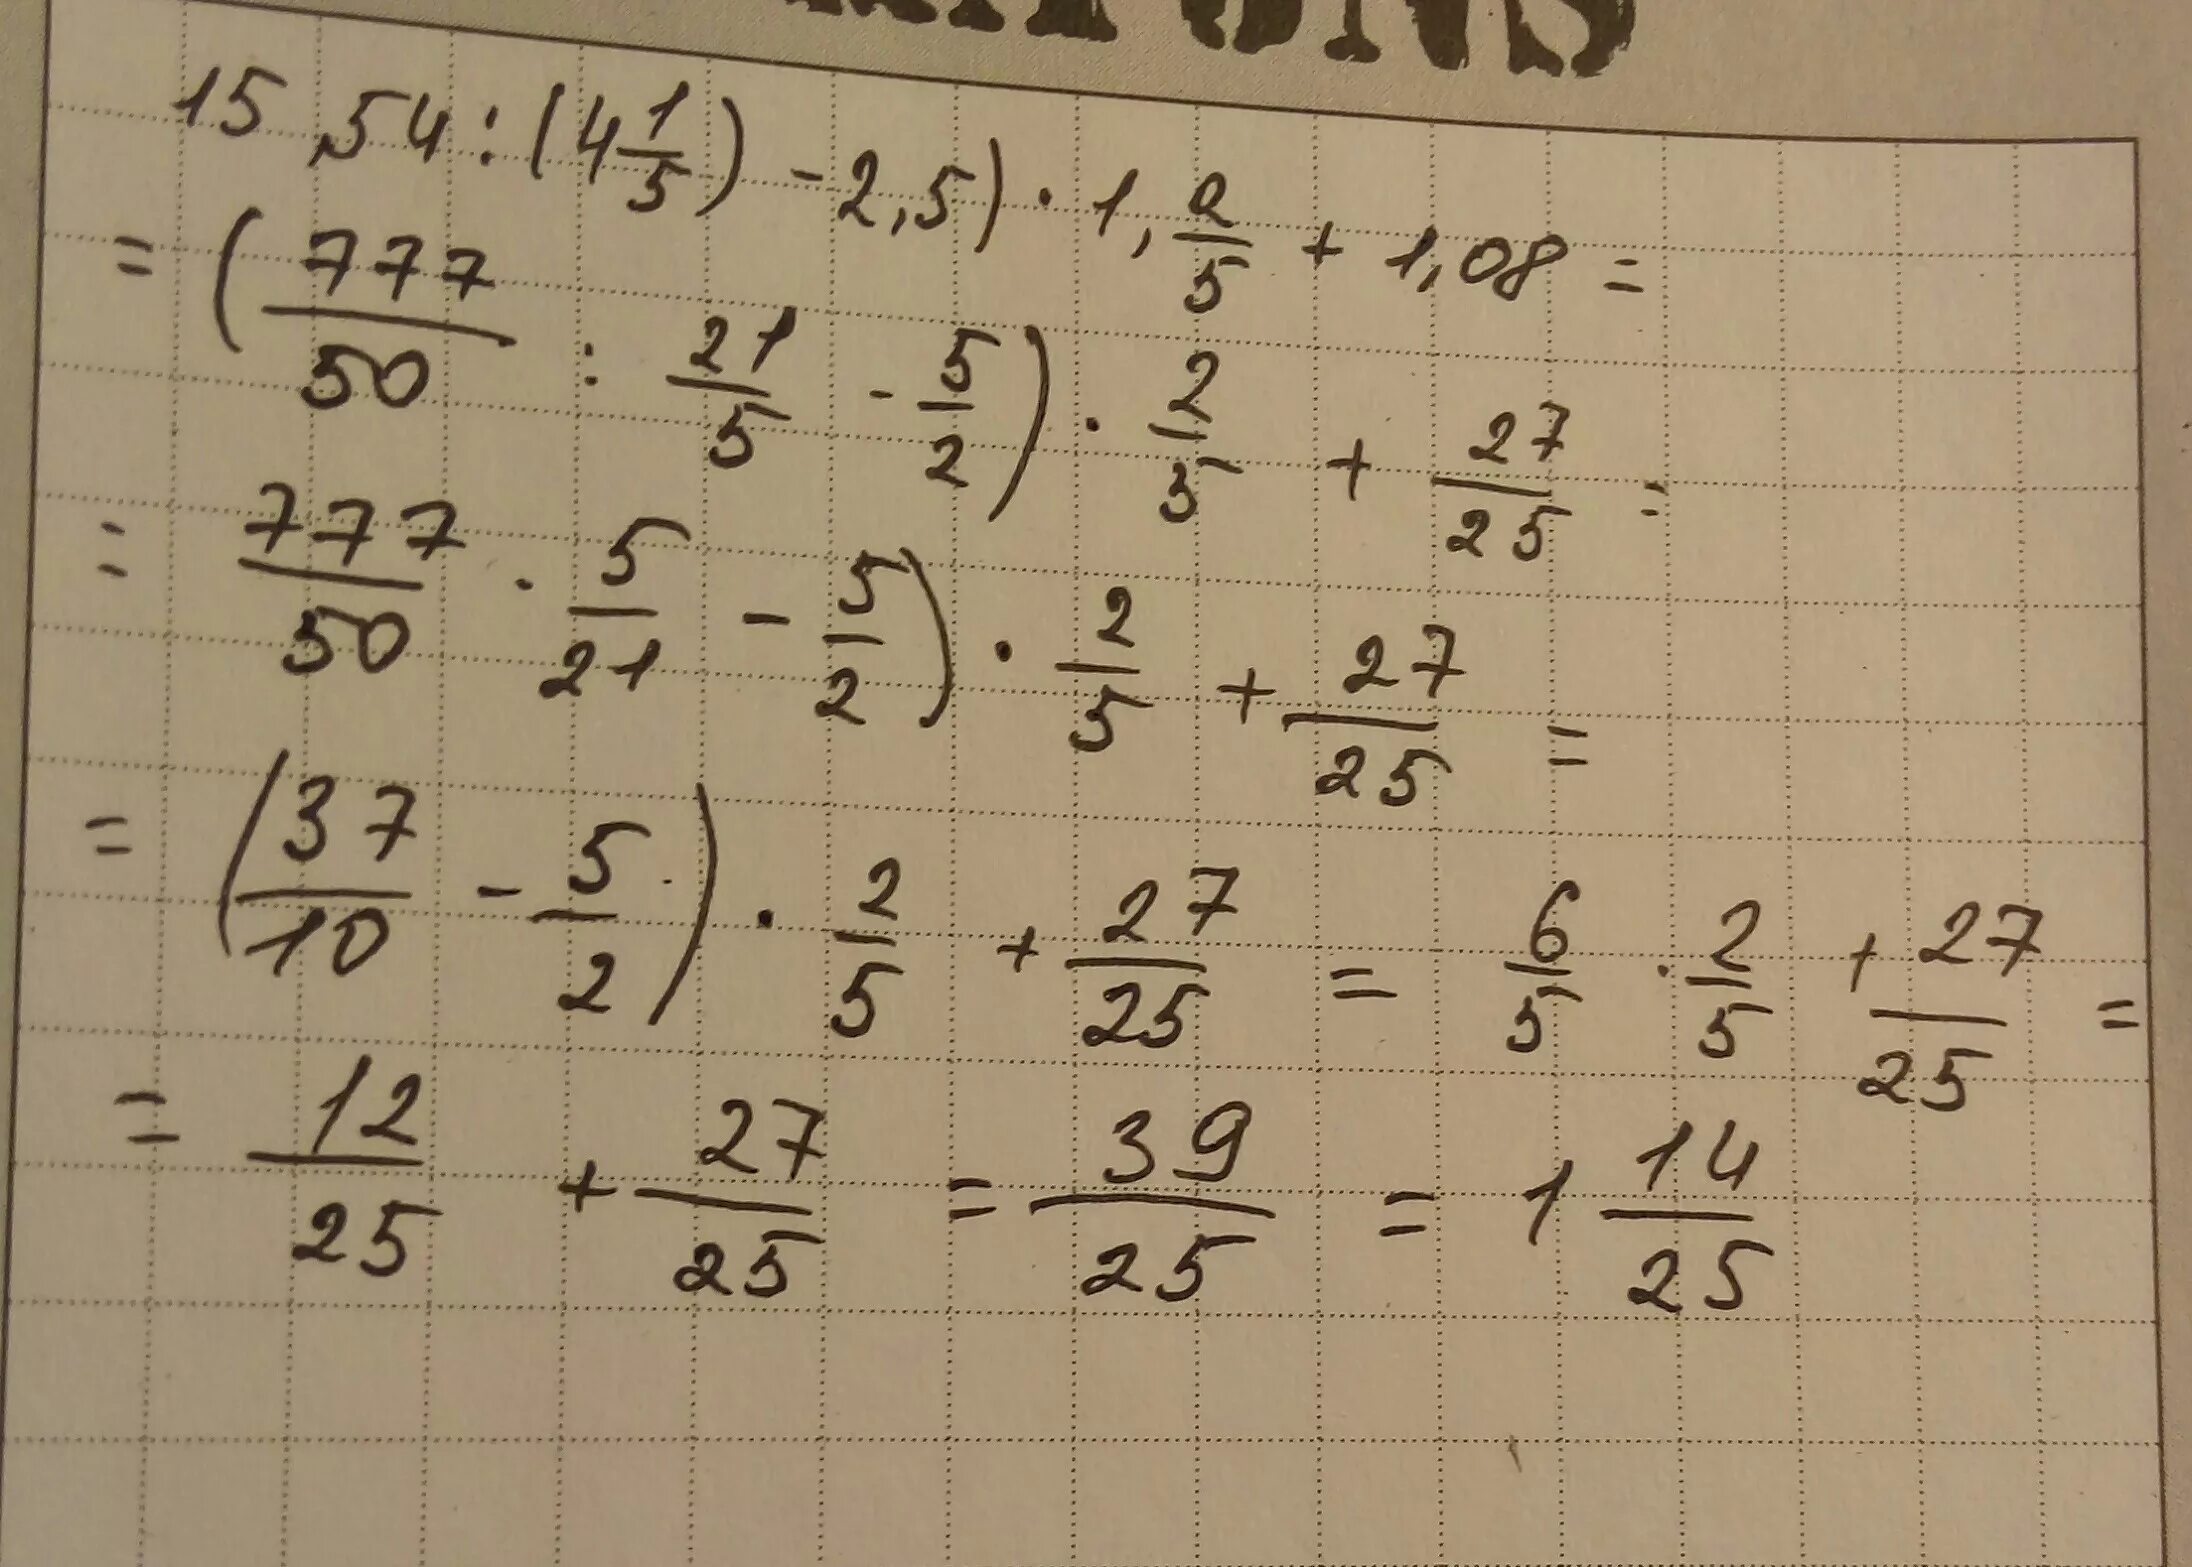 15,54:(4 1/5) - 2,5) · 1, 2/5 + 1,08 =
= (777/50 : 21/5 - 5/2) · 2/5 + 27/25 =
= 777/50 · 5/21 - 5/2) · 2/5 + 27/25 =
= (37/10 - 5/2) · 2/5 + 27/25 = 6/5 · 2/5 + 27/25 =
= 12/25 + 27/25 = 39/25 = 1 14/25